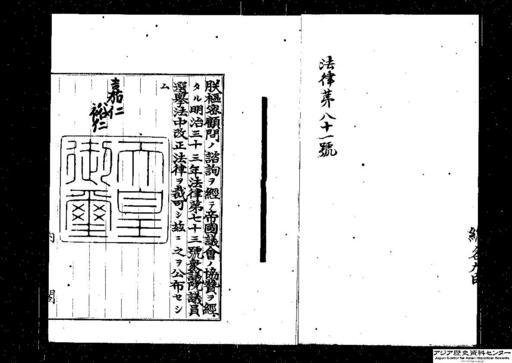 法律第八十一號
朕樞密顧問ノ諮詢ヲ經テ帝國議會ノ協贊ヲ經
タル明治三十三年法律第七十三號衆議院議員
選擧法中改正法律ヲ裁可シ玆ニ之ヲ公布セシ
ム
嘉仁
裕仁
天皇
御璽
内閣
アジア歴史資料センター
Japan Center for Asian Historical Records